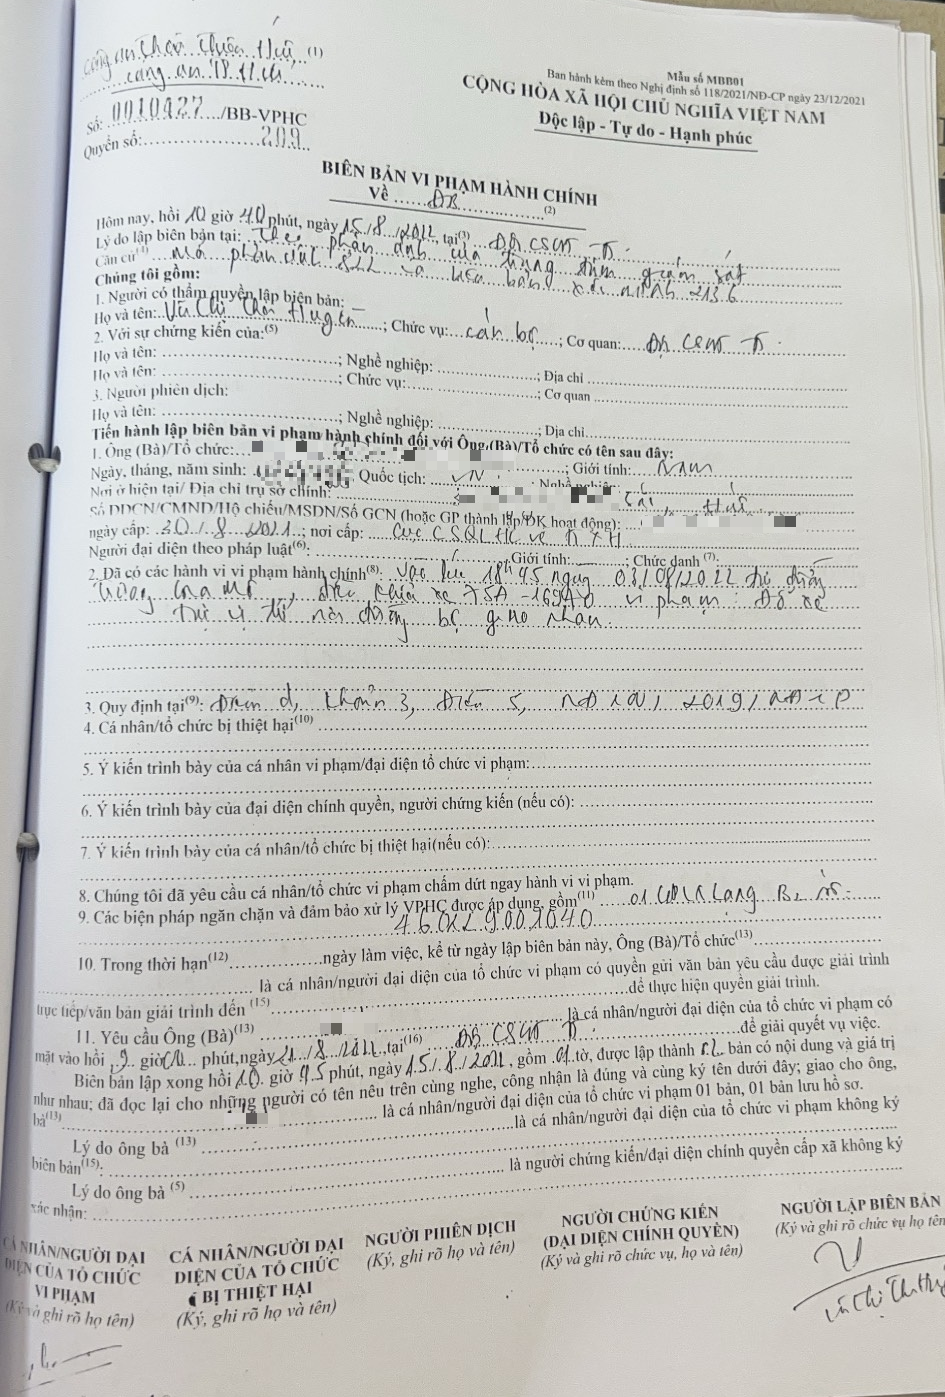 công an Thừa Thiên Huế (1)
công an TP. Huế
Mẫu số MBB01
Ban hành kèm theo Nghị định số 118/2021/NĐ-CP ngày 23/12/2021
CỘNG HÒA XÃ HỘI CHỦ NGHĨA VIỆT NAM
Độc lập - Tự do - Hạnh phúc
Số: 0010427/BB-VPHC
Quyển số: 209
BIÊN BẢN VI PHẠM HÀNH CHÍNH
Về ĐB (2)
Hôm nay, hồi 10 giờ 40 phút, ngày 15/8/2022, tại(3) Đội CSGT
Lý do lập biên bản tại: Theo phản ánh của trung tâm giám sát
Căn cứ(4) Mã phản ánh 822 và biên bản xác minh 2136
Chúng tôi gồm:
1. Người có thẩm quyền lập biên bản:
Họ và tên: Thị; Chức vụ: cán bộ; Cơ quan: Đội CSGT
2. Với sự chứng kiến của:(5)
Họ và tên: ; Nghề nghiệp: ; Địa chỉ
Họ và tên: ; Chức vụ: ; Cơ quan
3. Người phiên dịch:
Họ và tên: ; Nghề nghiệp: ; Địa chỉ
Tiến hành lập biên bản vi phạm hành chính đối với Ông (Bà)/Tổ chức có tên sau đây:
1. Ông (Bà)/Tổ chức: ; Giới tính: Nam
Ngày, tháng, năm sinh: Quốc tịch: VN; Nghề nghiệp:
Nơi ở hiện tại/ Địa chỉ trụ sở chính:
Số DDCN/CMND/Hộ chiếu/MSDN/Số GCN (hoặc GP thành lập/ĐK hoạt động):
ngày cấp: 20/8/2021; nơi cấp: Cục CSQLHC về TTXH
Người đại diện theo pháp luật(6): Giới tính: ; Chức danh (7):
2. Đã có các hành vi vi phạm hành chính(8): vào lúc 18h45 ngày 03/08/2022 tại đường
điều khiển xe 75A-16940 vi phạm: Đỗ xe
tại vị trí nơi đường bộ giao nhau.
3. Quy định tại(9): Điểm d, khoản 3, Điều 5, NĐ 100/2019/NĐ-CP
4. Cá nhân/tổ chức bị thiệt hại(10)
5. Ý kiến trình bày của cá nhân vi phạm/đại diện tổ chức vi phạm:
6. Ý kiến trình bày của đại diện chính quyền, người chứng kiến (nếu có):
7. Ý kiến trình bày của cá nhân/tổ chức bị thiệt hại(nếu có):
8. Chúng tôi đã yêu cầu cá nhân/tổ chức vi phạm chấm dứt ngay hành vi vi phạm.
9. Các biện pháp ngăn chặn và đảm bảo xử lý VPHC được áp dụng, gồm(11) 01 GPLX hạng B2 số:
460129001040
10. Trong thời hạn(12) ngày làm việc, kể từ ngày lập biên bản này, Ông (Bà)/Tổ chức(13)
là cá nhân/người đại diện của tổ chức vi phạm có quyền gửi văn bản yêu cầu được giải trình
trực tiếp/văn bản giải trình đến (15) để thực hiện quyền giải trình.
11. Yêu cầu Ông (Bà)(13) là cá nhân/người đại diện của tổ chức vi phạm có
mặt vào hồi 9 giờ phút, ngày 21/8/2022, tại(16) Đội CSGT để giải quyết vụ việc.
Biên bản lập xong hồi 10 giờ 45 phút, ngày 15/8/2022, gồm 01 tờ, được lập thành 02 bản có nội dung và giá trị
như nhau; đã đọc lại cho những người có tên nêu trên cùng nghe, công nhận là đúng và cùng ký tên dưới đây; giao cho ông,
bà(13) là cá nhân/người đại diện của tổ chức vi phạm 01 bản, 01 bản lưu hồ sơ.
Lý do ông bà (13) là cá nhân/người đại diện của tổ chức vi phạm không ký
biên bản(15):
Lý do ông bà (5) là người chứng kiến/đại diện chính quyền cấp xã không ký
xác nhận:
CÁ NHÂN/NGƯỜI ĐẠI DIỆN CỦA TỔ CHỨC VI PHẠM
(Ký và ghi rõ họ tên)
CÁ NHÂN/NGƯỜI ĐẠI DIỆN CỦA TỔ CHỨC BỊ THIỆT HẠI
(Ký, ghi rõ họ và tên)
NGƯỜI PHIÊN DỊCH
(Ký, ghi rõ họ và tên)
NGƯỜI CHỨNG KIẾN
(ĐẠI DIỆN CHÍNH QUYỀN)
(Ký và ghi rõ chức vụ, họ và tên)
NGƯỜI LẬP BIÊN BẢN
(Ký và ghi rõ chức vụ họ tên